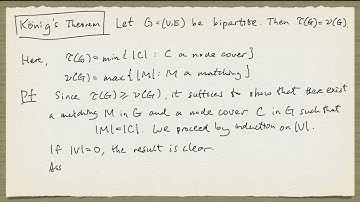 König's Theorem Let G=(V,E) be bipartite. Then τ(G)=ν(G).
Here, τ(G)=min{|C| : C a node cover}
ν(G)=max{|M| : M a matching}
Pf Since τ(G)≥ν(G), it suffices to show that there exist
a matching M in G and a node cover C in G such that
|M|=|C|. We proceed by induction on |V|.
If |V|=0, the result is clear.
Ass